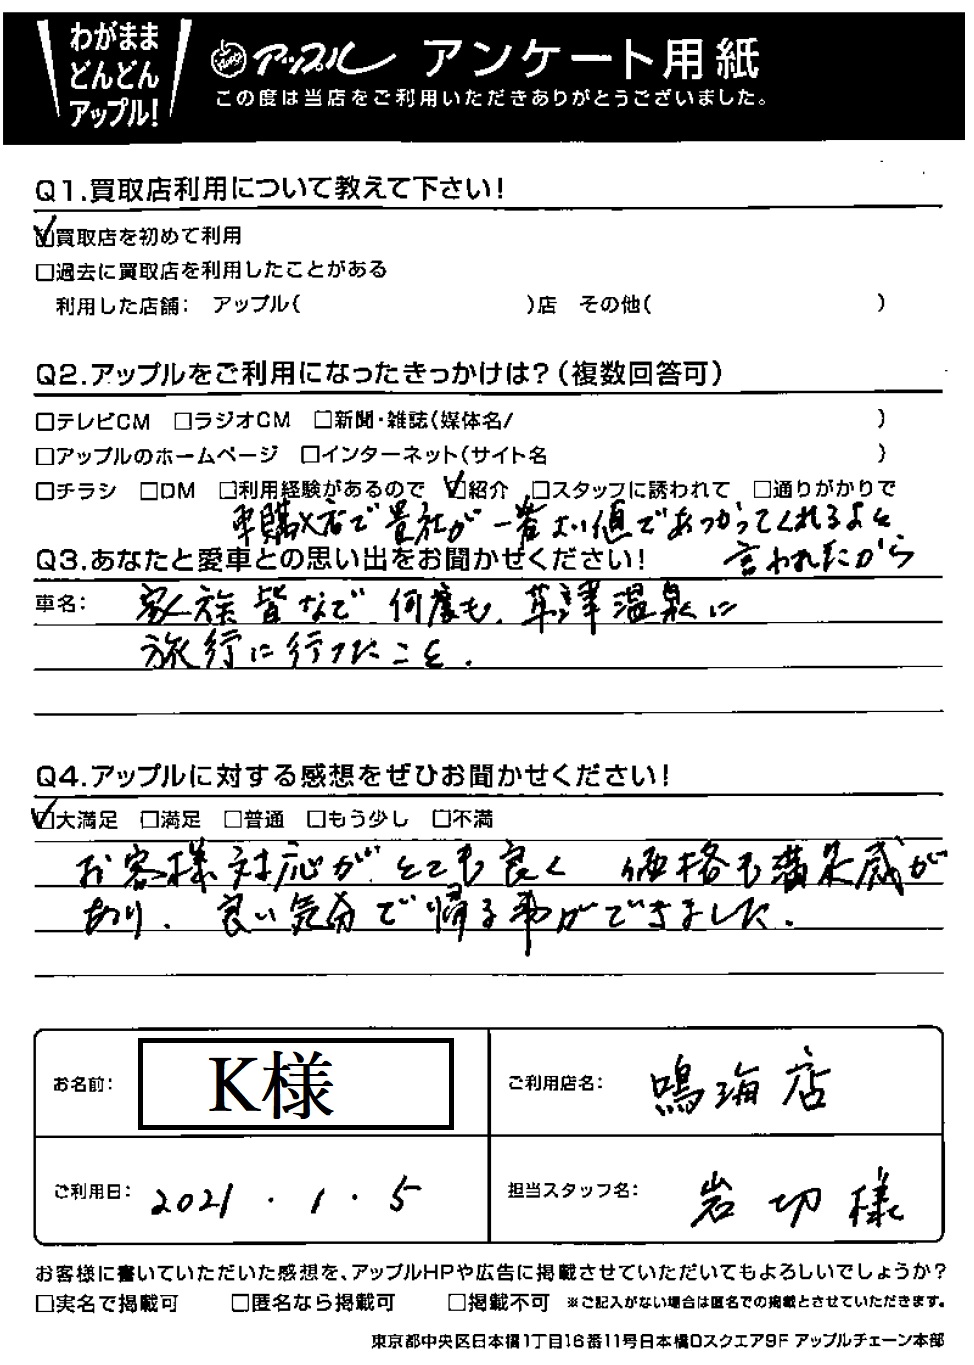 わがまま
どんどん
アップル!
アップル アンケート用紙
この度は当店をご利用いただきありがとうございました。
Q1.買取店利用について教えて下さい!
☑買取店を初めて利用
□過去に買取店を利用したことがある
利用した店舗: アップル( )店 その他( )
Q2.アップルをご利用になったきっかけは?(複数回答可)
□テレビCM □ラジオCM □新聞・雑誌(媒体名/ )
□アップルのホームページ □インターネット(サイト名 )
□チラシ □DM □利用経験があるので ☑紹介 □スタッフに誘われて □通りがかりで
車購入店で貴社が一番よい値であつかってくれるよと
言われたから
Q3.あなたと愛車との思い出をお聞かせください!
車名: 家族皆なで何度も、草津温泉に
旅行に行けたこと。
Q4.アップルに対する感想をぜひお聞かせください!
☑大満足 □満足 □普通 □もう少し □不満
お客様対応がとても良く 価格も満足感が
あり、良い気分で帰る事ができました。
お名前: K様
ご利用店名: 鳴海店
ご利用日: 2021.1.5
担当スタッフ名: 岩切様
お客様に書いていただいた感想を、アップルHPや広告に掲載させていただいてもよろしいでしょうか?
□実名で掲載可 □匿名なら掲載可 □掲載不可 ※ご記入がない場合は匿名での掲載とさせていただきます。
東京都中央区日本橋1丁目16番11号日本橋Dスクエア9F アップルチェーン本部